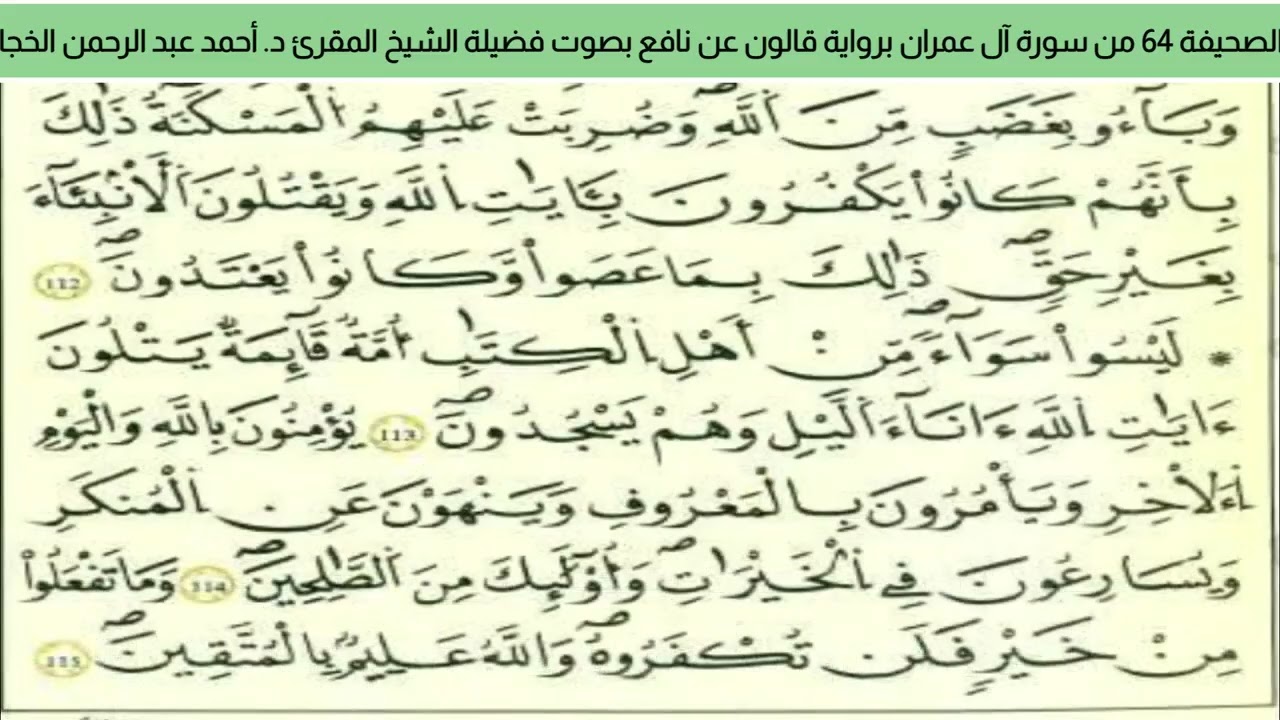 الصحيفة 64 من سورة آل عمران برواية قالون عن نافع بصوت فضيلة الشيخ المقرئ د. أحمد عبد الرحمن الخجا
وَبَآءُو بِغَضَبٍ مِّنَ اَ۬للَّهِ وَضُرِبَتْ عَلَيْهِمُ اُ۬لْمَسْكَنَةُ ذَٰلِكَ
بِأَنَّهُمْ كَانُواْ يَكْفُرُونَ بِـَٔايَٰتِ اِ۬للَّهِ وَيَقْتُلُونَ اَ۬لْأَنۢبِئَآءَ
بِغَيْرِ حَقٍّ ذَٰلِكَ بِمَا عَصَواْ وَّكَانُواْ يَعْتَدُونَ 112
* لَيْسُواْ سَوَآءً مِّنْ أَهْلِ اِ۬لْكِتَٰبِ أُمَّةٌ قَآئِمَةٌ يَتْلُونَ
ءَايَٰتِ اِ۬للَّهِ ءَانَآءَ اَ۬لَّيْلِ وَهُمْ يَسْجُدُونَ 113 يُؤْمِنُونَ بِاللَّهِ وَالْيَوْمِ
اِ۬ءَلْأخِرِ وَيَأْمُرُونَ بِالْمَعْرُوفِ وَيَنْهَوْنَ عَنِ اِ۬لْمُنكَرِ
وَيُسَارِعُونَ فِي اِ۬لْخَيْرَٰتِ وَأُوْلَٰٓئِكَ مِنَ اَ۬لصَّٰلِحِينَ 114 وَمَا تَفْعَلُواْ
مِنْ خَيْرٍ فَلَن تُكْفَرُوهُ وَاللَّهُ عَلِيمٌ بِالْمُتَّقِينَ 115